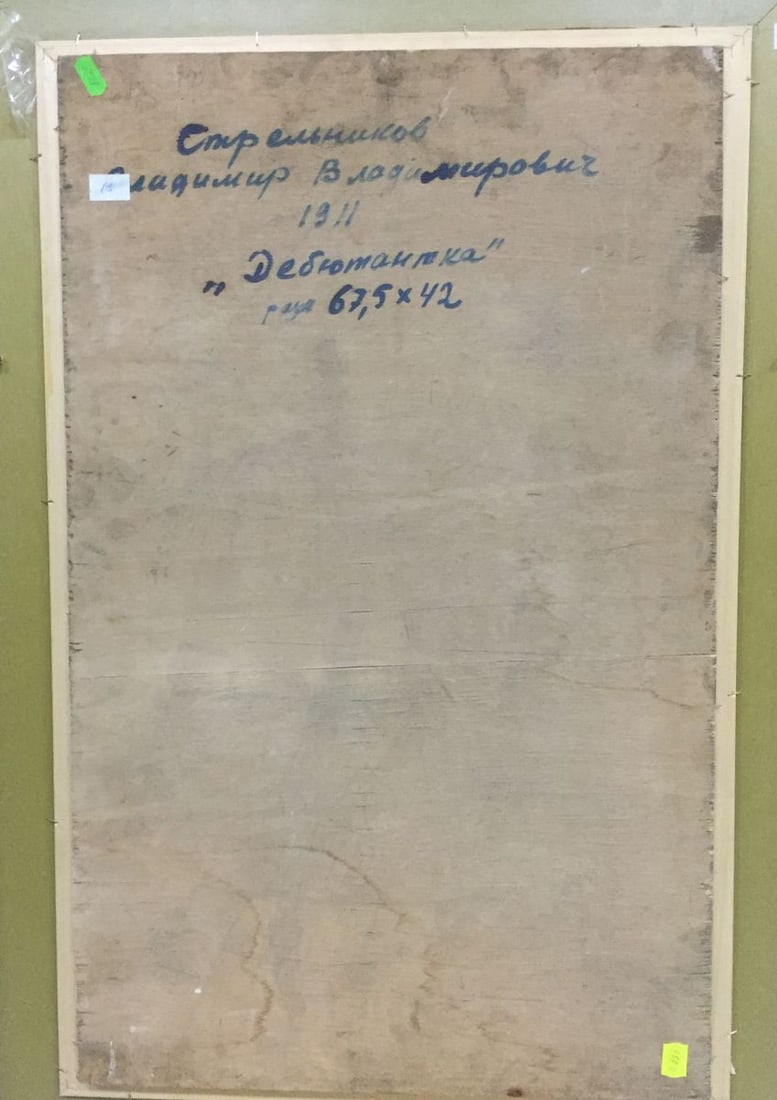 Стрельников
Владимир Владимирович
1911
„Дебютантка"
разм 67,5 х 42